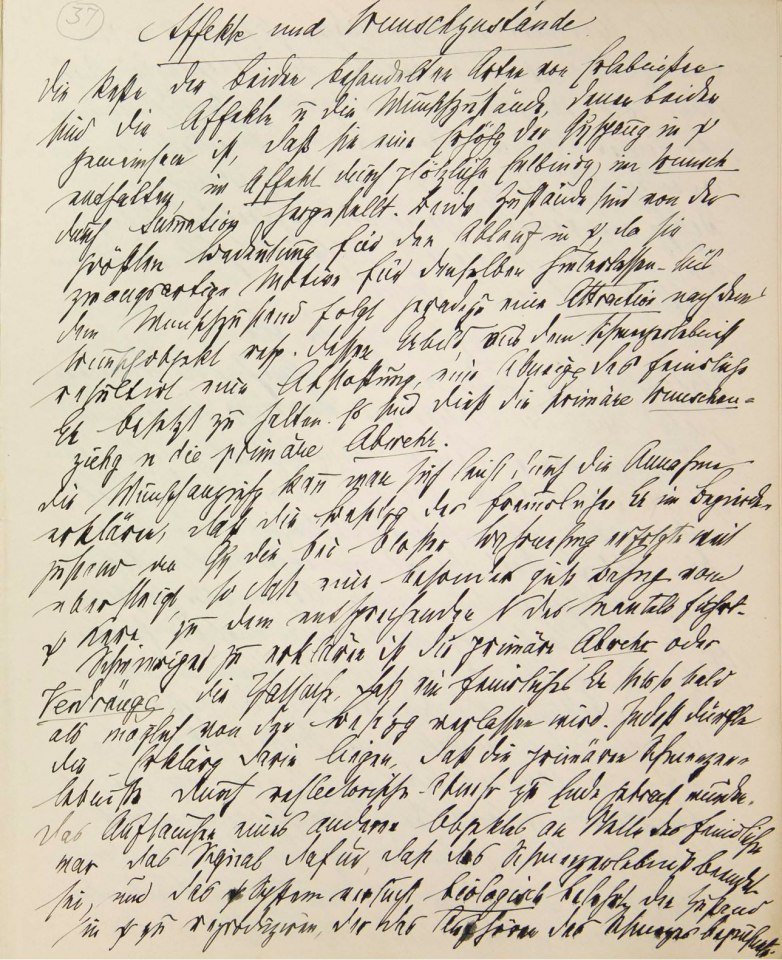 37
Affekte und Wunschzustände
Die Reste der beiden behandelten Arten von Erlebnißen
sind die Affekte u die Wunschzustände, denen beiden
gemeinsam ist, daß sie eine Erhöhg der Qη̇spang in ψ
enthalten, im Affekt durch plötzliche Entbindung, im Wunsch
durch Summation hergestellt. Beide Zustände sind von der
größten Bedeutung für den Ablauf in ψ, da sie
zwangsartige Motive für denselben hinterlassen. Aus
dem Wunschzustand folgt geradezu eine Attraction nach dem
Wunschobjekt resp. dessen Erbild, aus dem Schmerzerlebniß
resultirt eine Abstoßung, eine Abneigg das feindliche
Er besetzt zu halten. Es sind dieß die primäre Wunschan-
ziehg u die primäre Abwehr.
Die Wunschanziehg kann man sich leicht durch die Annahme
erklären, daß die Besetzg des freundlichen Er im Begierde-
zustand an Qη̇ die bei bloßer Wahrnehmg erfolgte weit
übersteigt, so daß eine besonders gute Bahng vom
ψ Kern zu dem entsprechenden N des Mantels führt.
Schwieriger zu erklären ist die primäre Abwehr oder
Verdrängg, die Thatsache, daß ein feindliches Er stets so bald
als möglich von der Besetzg verlassen wird. Indeß dürfte
die Erklärg darin liegen, daß die primären Schmerzer-
lebniße durch reflectorische Abwehr zu Ende gebracht wurden.
Das Auftauchen eines anderen Objektes an Stelle des feindlichen
war das Signal dafür, daß das Schmerzerlebniß beendet
sei, und das ψ System versucht, biologisch belehrt, den Zustand
in ψ zu reproduziren, der das Aufhören des Schmerzes bezeichnete.